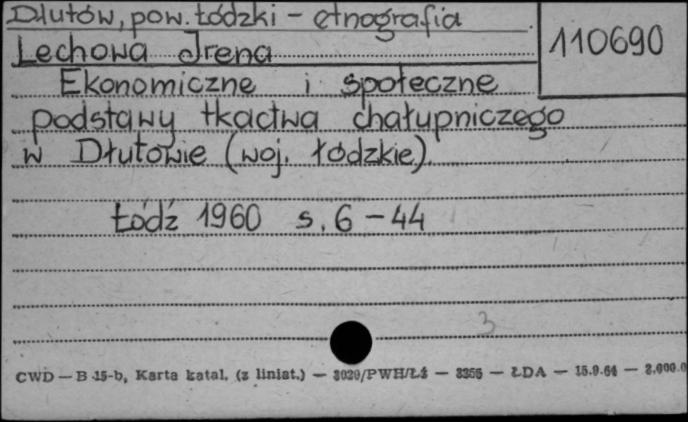 Dłutów, pow. Łódzki - etnografia
110690
Lechowa Irena
Ekonomiczne i społeczne
podstawy tkactwa chałupniczego
w Dłutowie (woj. łódzkie).
Łódź 1960 s. 6 - 44
3
CWD — B 15-b, Karta katal. (z liniat.) — 3029/PWH/Łż — 3356 — ŁDA — 15.9.64 — 2.000.0